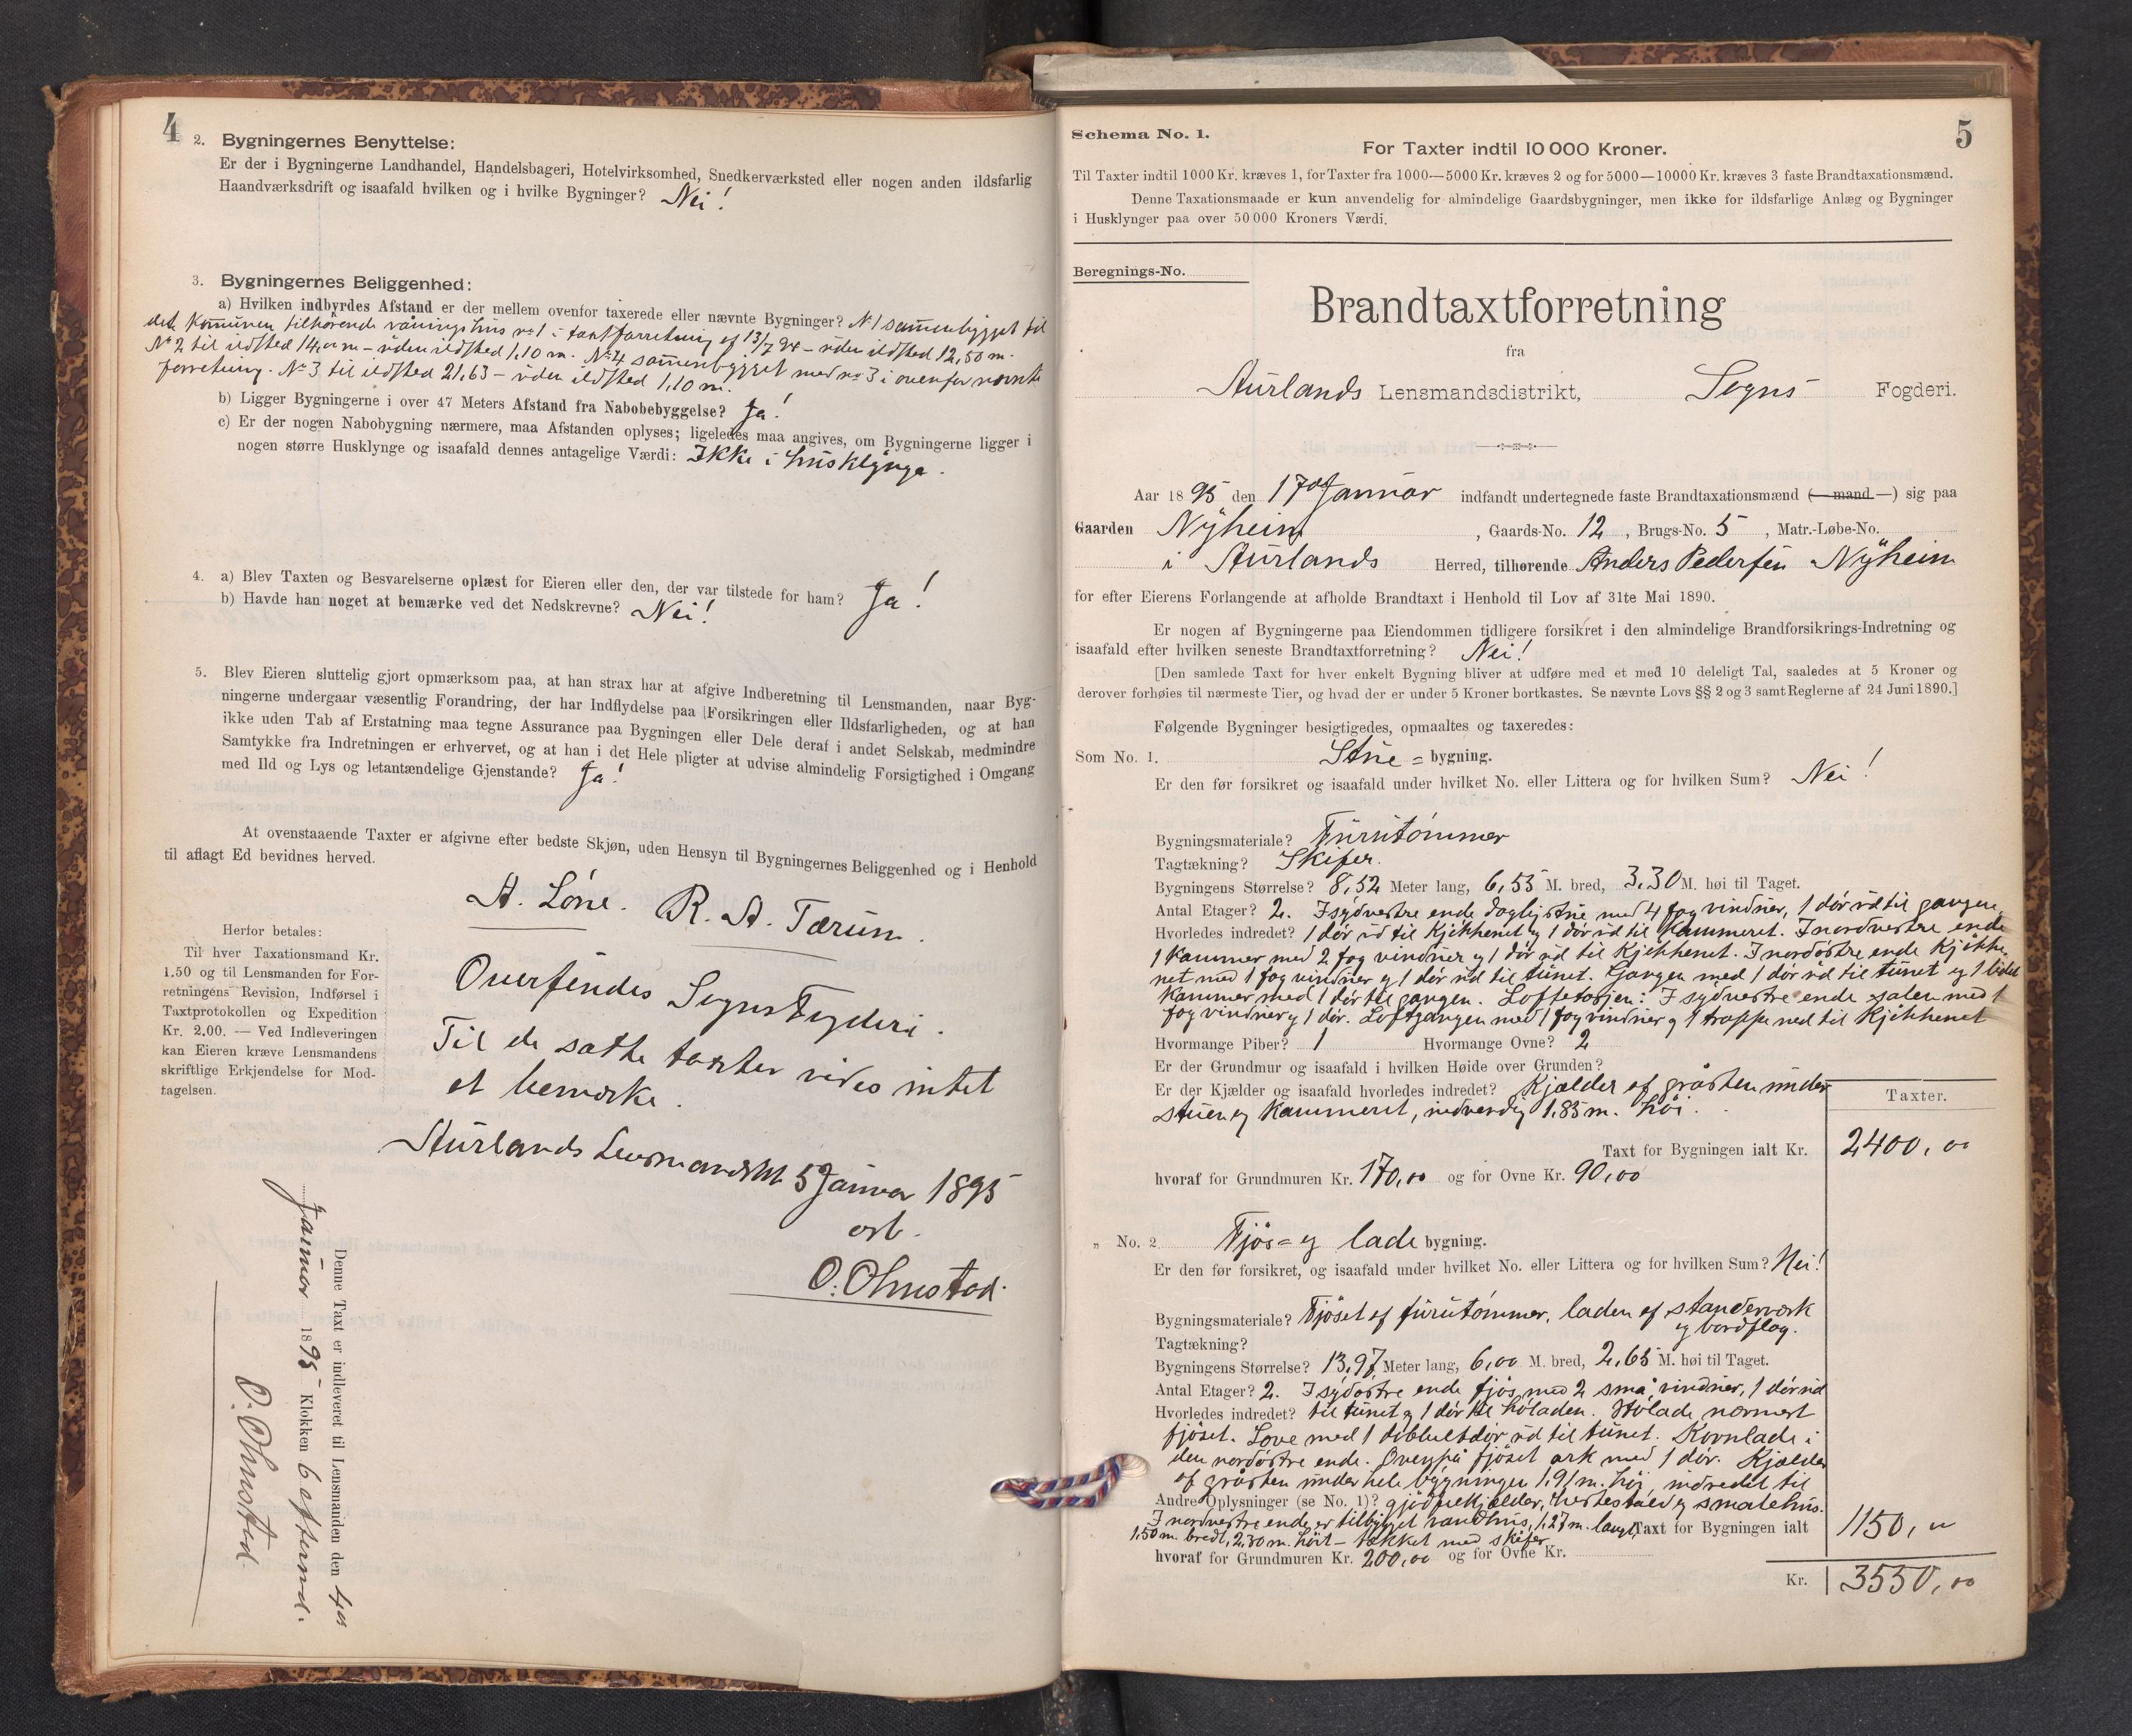 4
2. Bygningernes Benyttelse:
Er der i Bygningerne Landhandel, Handelsbageri, Hotelvirksomhed, Snedkerværksted eller nogen anden ildsfarlig
Haandværksdrift og isaafald hvilken og i hvilke Bygninger? Nei!
3. Bygningernes Beliggenhed:
a) Hvilken indbyrdes Afstand er der mellem ovenfor taxerede eller nævnte Bygninger? No 1 sammenbygget til
det Komunen tilhörende våningshus no 1 i taxtforretning af 13/7 94 – uden ildsted 12,50 m.
No 2 til ildsted 14,00 m – uden ildsted 1,10 m. No 4 sammenbygget med no 3 i ovenfor nævnte
forretning. No 3 til ildsted 21,63 – uden ildsted 1,10 m.
b) Ligger Bygningerne i over 47 Meters Afstand fra Nabobebyggelse? Ja!
c) Er der nogen Nabobygning nærmere, maa Afstanden oplyses; ligeledes maa angives, om Bygningerne ligger i
nogen større Husklynge og isaafald dennes antagelige Værdi: Ikke i husklynge.
4. a) Blev Taxten og Besvarelserne oplæst for Eieren eller den, der var tilstede for ham? Ja!
b) Havde han noget at bemærke ved det Nedskrevne? Nei!
5. Blev Eieren sluttelig gjort opmærksom paa, at han strax har at afgive Indberetning til Lensmanden, naar Byg-
ningerne undergaar væsentlig Forandring, der har Indflydelse paa Forsikringen eller Ildsfarligheden, og at han
ikke uden Tab af Erstatning maa tegne Assurance paa Bygningen eller Dele deraf i andet Selskab, medmindre
Samtykke fra Indretningen er erhvervet, og at han i det Hele pligter at udvise almindelig Forsigtighed i Omgang
med Ild og Lys og letantændelige Gjenstande? Ja!
At ovenstaaende Taxter er afgivne efter bedste Skjøn, uden Hensyn til Bygningernes Beliggenhed og i Henhold
til aflagt Ed bevidnes herved.
A. Lône. R. A. Tærum.
Herfor betales:
Til hver Taxationsmand Kr.
1.50 og til Lensmanden for For-
retningens Revision, Indførsel i
Taxtprotokollen og Expedition
Kr. 2.00. — Ved Indleveringen
kan Eieren kræve Lensmandens
skriftlige Erkjendelse for Mod-
tagelsen.
Oversendes Sogns Fogderi.
Til de satte taxter vides intet
at bemærke.
Aurlands Lensmandsbst 5 Januar 1895
erb.
O. Ohnstad.
Denne Taxt er indleveret til Lensmanden den 4de
Januar 1895 Klokken 6 eftermd.
O. Ohnstad.
5
Schema No. 1.
For Taxter indtil 10 000 Kroner.
Til Taxter indtil 1000 Kr. kræves 1, for Taxter fra 1000—5000 Kr. kræves 2 og for 5000—10000 Kr. kræves 3 faste Brandtaxationsmænd.
Denne Taxationsmaade er kun anvendelig for almindelige Gaardsbygninger, men ikke for ildsfarlige Anlæg og Bygninger
i Husklynger paa over 50 000 Kroners Værdi.
Beregnings-No.
Brandtaxtforretning
fra
Aurlands Lensmandsdistrikt, Sogns Fogderi.
Aar 1895 den 17de Januar indfandt undertegnede faste Brandtaxationsmænd (—mand—) sig paa
Gaarden Nyheim, Gaards-No. 12, Brugs-No. 5, Matr.-Løbe-No.
i Aurlands Herred, tilhørende Anders Pedersen Nyheim
for efter Eierens Forlangende at afholde Brandtaxt i Henhold til Lov af 31te Mai 1890.
Er nogen af Bygningerne paa Eiendommen tidligere forsikret i den almindelige Brandforsikrings-Indretning og
isaafald efter hvilken seneste Brandtaxtforretning? Nei!
[Den samlede Taxt for hver enkelt Bygning bliver at udføre med et med 10 deleligt Tal, saaledes at 5 Kroner og
derover forhøies til nærmeste Tier, og hvad der er under 5 Kroner bortkastes. Se nævnte Lovs §§ 2 og 3 samt Reglerne af 24 Juni 1890.]
Følgende Bygninger besigtigedes, opmaaltes og taxeredes:
Som No. 1. Stue=bygning.
Er den før forsikret og isaafald under hvilket No. eller Littera og for hvilken Sum? Nei!
Bygningsmateriale? Furutömmer
Tagtækning? Skifer.
Bygningens Størrelse? 8,52 Meter lang, 6,55 M. bred, 3,30 M. høi til Taget.
Antal Etager? 2. I sydvestre ende dagligstue med 4 fag vinduer, 1 dör ud til gangen,
Hvorledes indredet? 1 dör ud til Kjökkenet og 1 dör ud til Kammeret. I nordvestre ende
1 Kammer med 2 fag vinduer og 1 dör ud til Kjökkenet. I nordöstre ende Kjökke-
net med 1 fag vinduer og 1 dör ud til tunet. Gangen med 1 dör ud til tunet og 1 lidet
Kammer med 1 dör til gangen. Loftetasjen: I sydvestre ende salen med 1
fag vinduer og 1 dör. Loftgangen med 1 fag vinduer og 1 trappe ned til Kjökkenet
Hvormange Piber? 1 Hvormange Ovne? 2
Er der Grundmur og isaafald i hvilken Høide over Grunden?
Er der Kjælder og isaafald hvorledes indredet? Kjælder af gråsten under
stuen og Kammeret, indvendig 1,85 m. höi.
Taxter.
Taxt for Bygningen ialt Kr. 2400,00
hvoraf for Grundmuren Kr. 170,00 og for Ovne Kr. 90,00
„ No. 2 Fjös= og lade bygning.
Er den før forsikret, og isaafald under hvilket No. eller Littera og for hvilken Sum? Nei!
Bygningsmateriale? Fjöset af furutömmer, laden af standerværk
og bordflag.
Tagtækning?
Bygningens Størrelse? 13,97 Meter lang, 6,00 M. bred, 2,65 M. høi til Taget.
Antal Etager? 2. I sydöstre ende fjös med 2 små vinduer, 1 dör ud
Hvorledes indredet? til tunet og 1 dör til höladen. Hölade nærmest
fjöset. Love med 1 dobbeltdör ud til tunet. Kornlade i
den nordöstre ende. Ovenpå fjöset ark med 1 dör. Kjælder
af gråsten under hele bygningen 1,91 m. höi, indredet til
Andre Oplysninger (se No. 1)? gjödselkjælder, hestestald og smalehus.
I nordvestre ende er tilbygget vandhus, 1,27 m. langt, Taxt for Bygningen ialt 1150,00
1,50 m. bredt, 2,30 m. höit – tækket med skifer
hvoraf for Grundmuren Kr. 200,00 og for Ovne Kr.
Kr. 3550,00